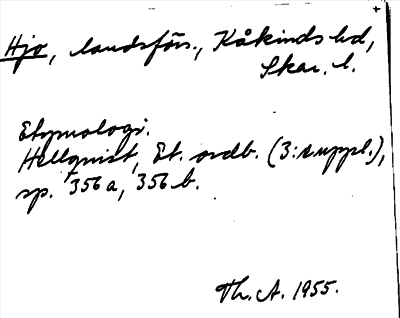 Hjo, landsförs., Kåkinds hd,
Skar. l.
Etymologi.
Hellquist, Et. ordb. (3: suppl.),
sp. 356 a, 356 b.
Th. A. 1955.